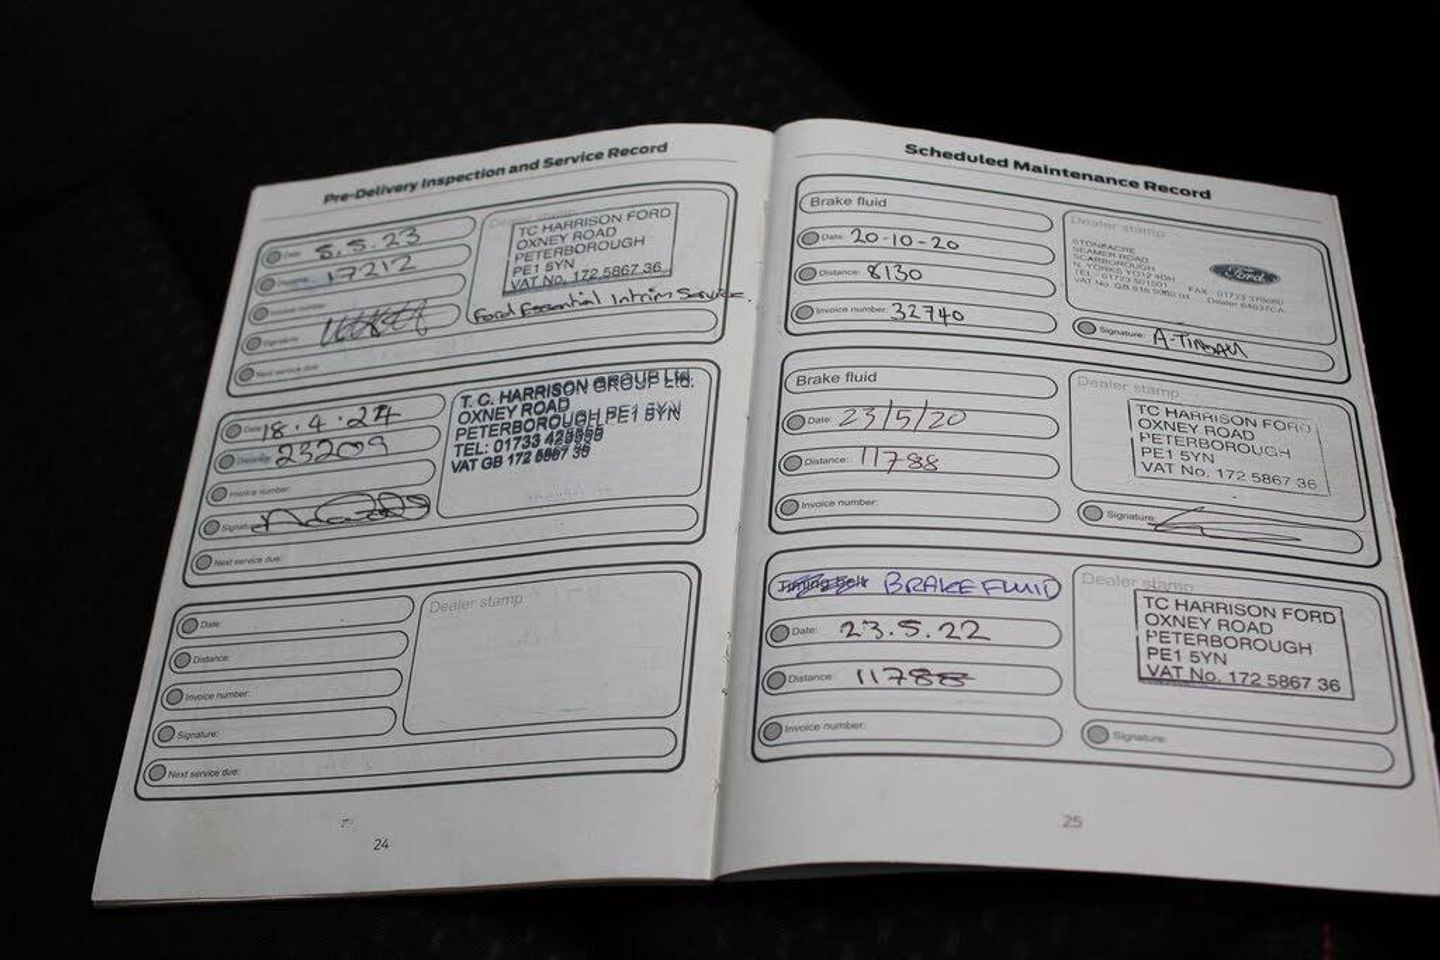 Pre-Delivery Inspection and Service Record
Date: 8.5.23
17212
Signature
Next service due:
Dealer stamp
TC HARRISON FORD
OXNEY ROAD
PETERBOROUGH
PE1 5YN
VAT No. 172 5867 36
Ford Essential Intrim Service.
Date: 18.4.24
Distance: 23209
Invoice number:
Signature
Next service due:
T. C. HARRISON GROUP Ltd.
OXNEY ROAD
PETERBOROUGH PE1 5YN
TEL: 01733
VAT GB 172 5867 36
Date:
Distance:
Invoice number:
Signature:
Next service due:
Dealer stamp
24
Scheduled Maintenance Record
Brake fluid
Date: 20-10-20
Distance: 8130
Invoice number: 32740
Dealer stamp
STONEACRE
SEAMER ROAD
SCARBOROUGH
N. YORKS YO12 4DH
Ford
Signature:
Brake fluid
Date: 23/5/20
Distance: 11788
Invoice number:
Dealer stamp
TC HARRISON FORD
OXNEY ROAD
PETERBOROUGH
PE1 5YN
VAT No. 172 5867 36
Signature:
Timing belt BRAKE FLUID
Date: 23.5.22
Distance: 11788
Invoice number:
Dealer stamp
TC HARRISON FORD
OXNEY ROAD
PETERBOROUGH
PE1 5YN
VAT No. 172 5867 36
Signature:
25